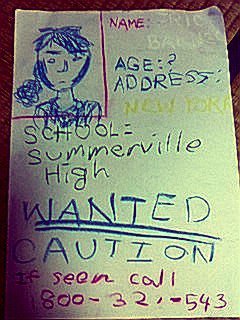 NAME: ERIC
AGE:?
ADDRESS:
NEW YORK
SCHOOL=
Summerville
High
WANTED
CAUTION
if seen call
800-321-543